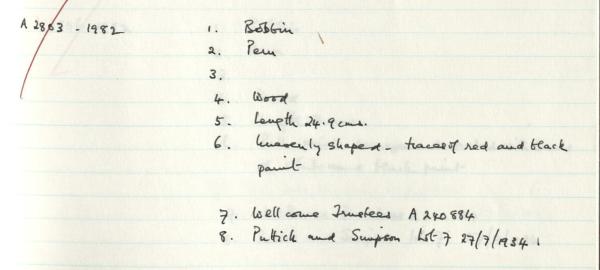 A 2803 - 1982 1. Bobbin
2. Peru
3.
4. Wood
5. Length 24.9 cms.
6. Unevenly shaped - traces of red and black
paint
7. Wellcome Trustees A 240884
8. Puttick and Simpson Lot 7 27/7/1934